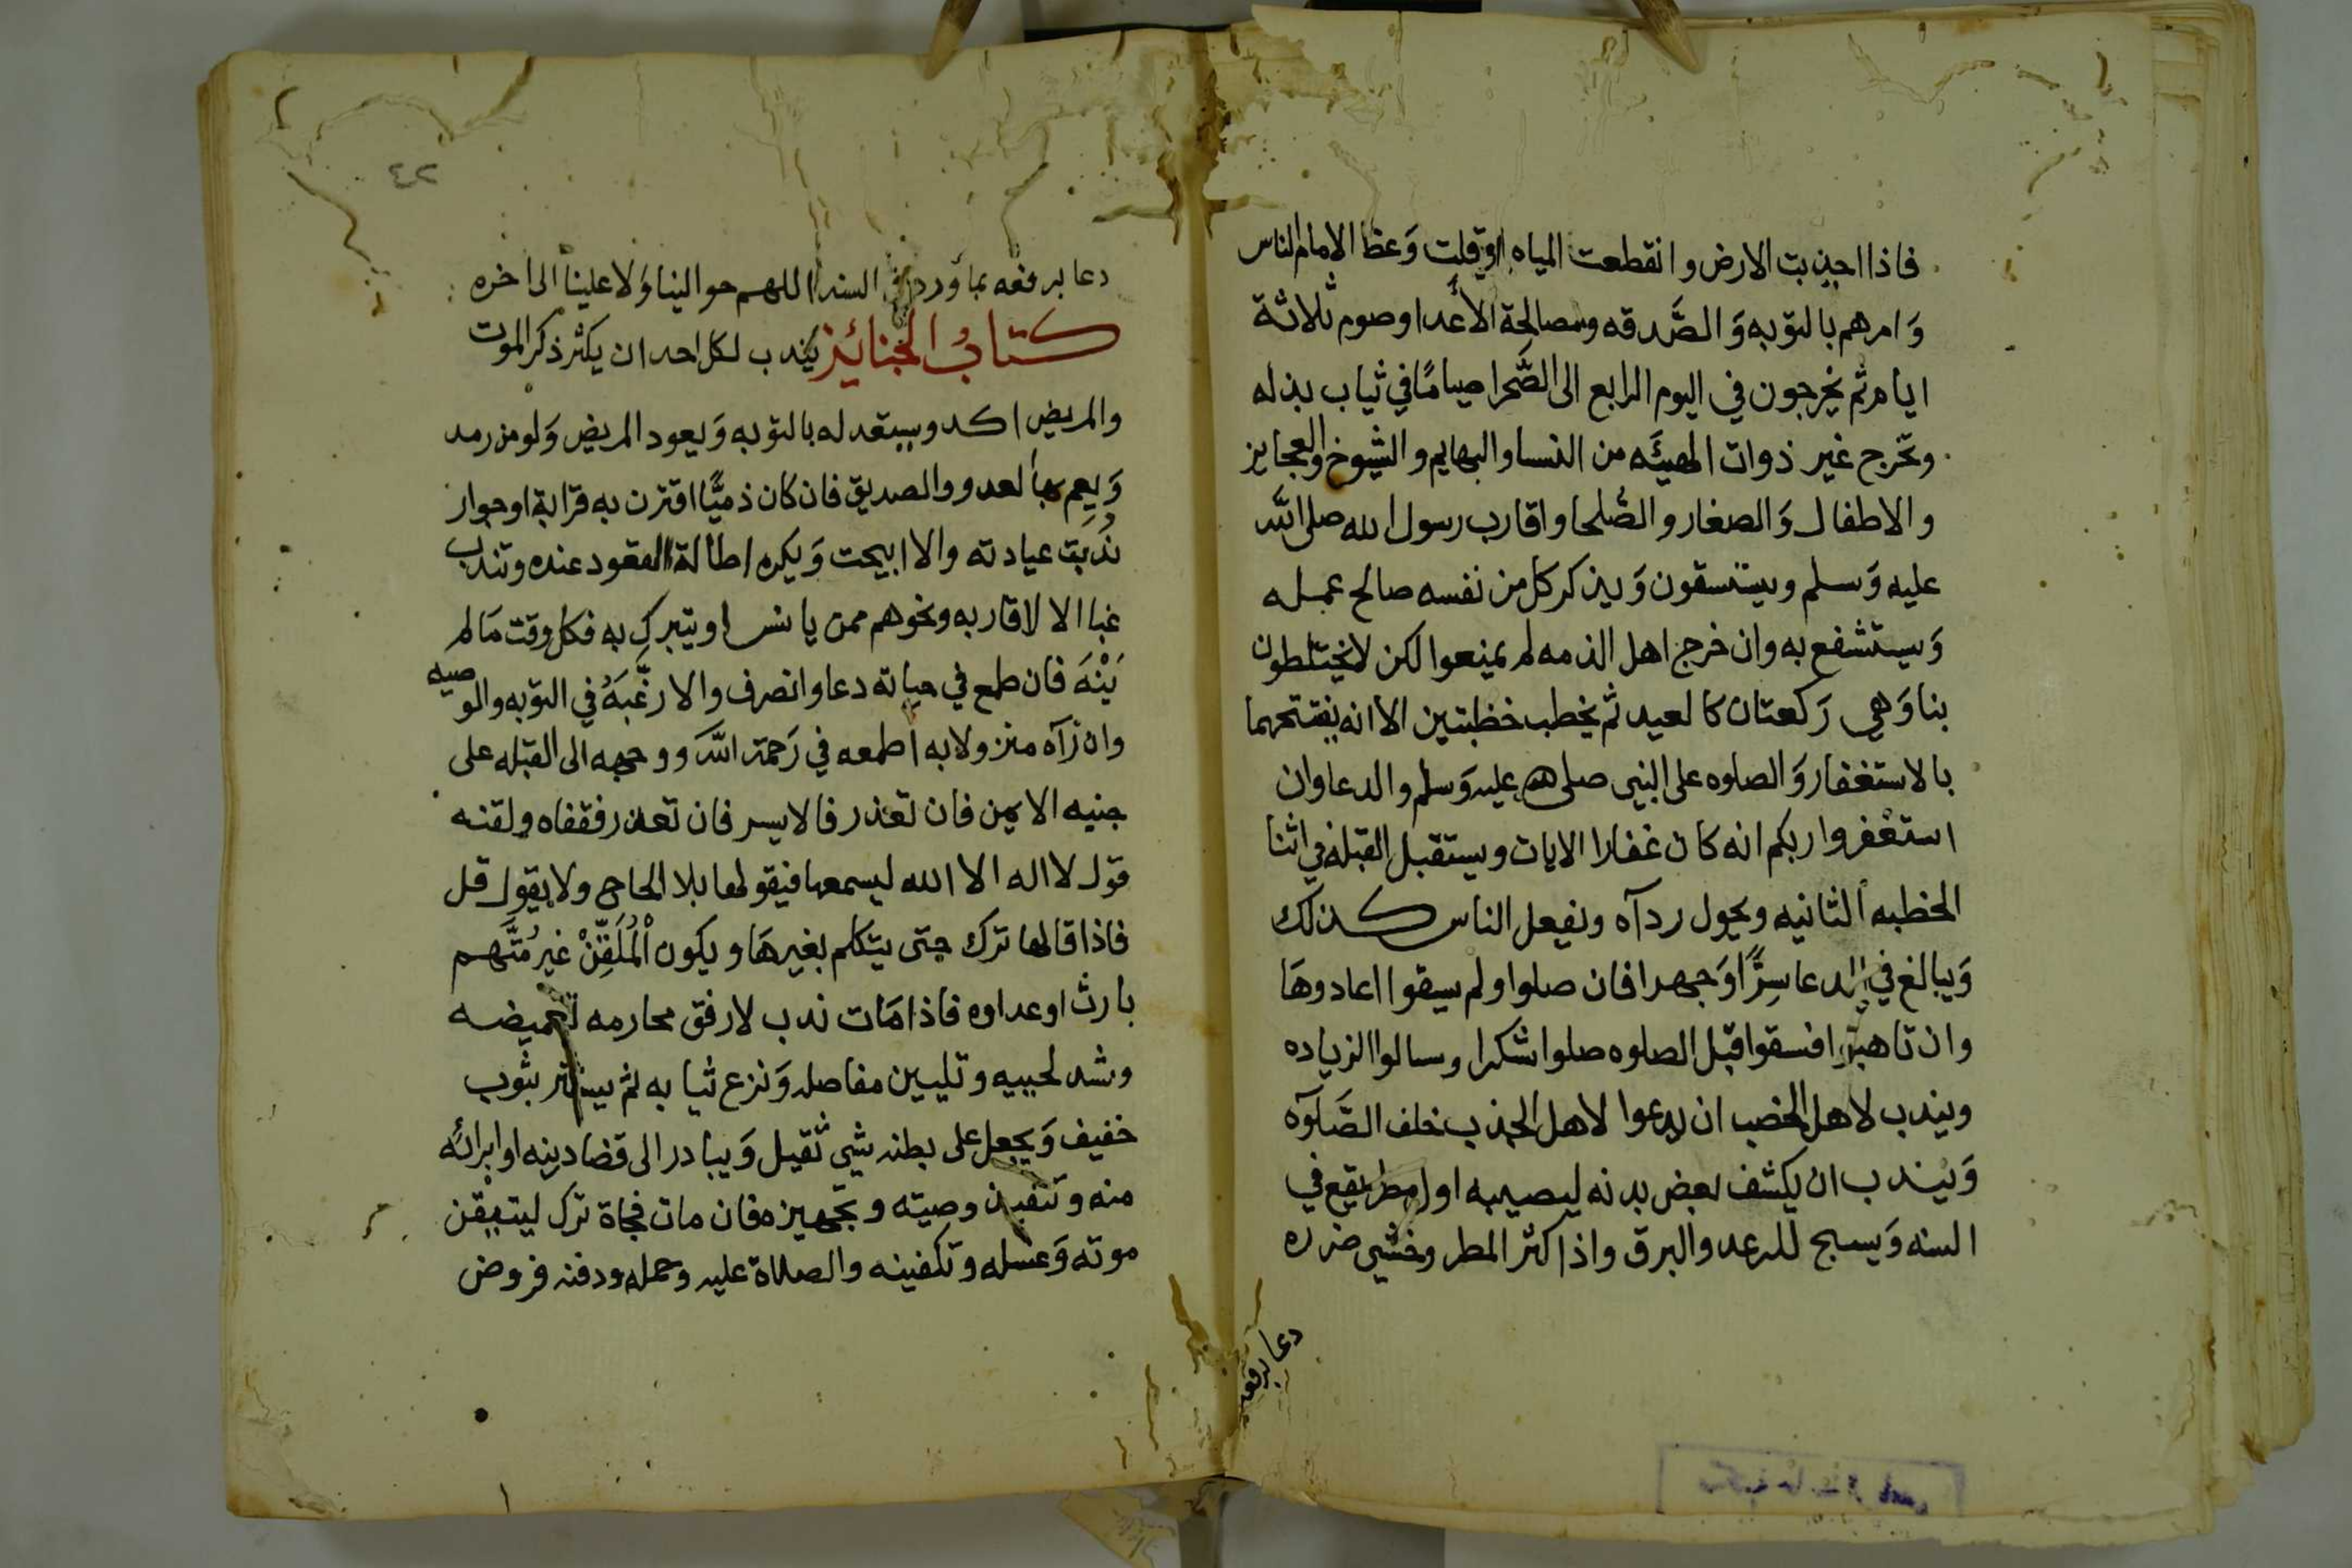 فاذا اجذبت الارض وانقطعت المياه او قلت وَعظ الامام الناس
وَامرهم بالتوبه وَالصَّدقه ومصالحة الأعدا وصوم ثلاثة
ايام ثم يخرجون في اليوم الرابع الى الصَّحرا صيامًا في ثياب بذله
وتخرج غير ذوات الهيئَه من النسا والبهايم والشيوخ والعجايز
والاطفال وَالصغار والصُّلحا واقارب رسول الله صلى اللَّه
عليه وَسلم ويستسقون وَيذكر كل من نفسه صالح عمله
وَيستشفع به وان خرج اهل الذمه لم يمنعوا لكن لا يختلطون
بنا وَهي رَكعتان كالعيد ثم يخطب خطبتين الا انه يفتتحهما
بالاستغفار وَالصلوه على النبى صلى الله عليه وَسلم والدعا وان
استغفروا ربكم انه كان غفارا الايات ويستقبل القبله في اثنا
الخطبه الثانيه ويحول ردآه ويفعل الناس كذلك
وَيبالغ في الدعا سِرًّا وَجهرا فان صلوا ولم يسقوا اعادوهَا
وان تاهبوا فسقوا قبل الصلوه صلوا شكرا وسالوا الزياده
ويندب لاهل الخصب ان يدعوا لاهل الجذب خلف الصَّلوٰه
وَيندب ان يكشف بعض بدنه ليصيبه اول مطر يقع في
السنه وَيسبح للرعد والبرق واذا كثر المطر وخشي ضرره
دعا برفعه
٤٢
دعا برفعه بما وَرد في السنه اللهم حوالينا وَلا علينا الى اخره
كتابُ الجنائز يُندب لكل احد ان يكثر ذكر الموت
والمريض اكد ويستعد له بالتوبه وَيعود المريض وَلو من رمد
وَيعم بها العدو والصديق فان كان ذميًّا اقترن به قرابة او جوار
نُدِبَت عيادته والا ابيحت وَيكره اطالة القعود عنده وتندب
غبا الا لاقاربه ونحوهم ممن يانس او يتبرك به فكل وقت مَا لم
يَنْهَ فان طمع في حياته دعا وانصرف والا رغَّبَهُ في التوبه والوصيه
وان رَآه منزولا به اطمعه في رَحمة اللَّه ووجهه الى القبله على
جنبه الايمن فان تعذر فالايسر فان تعذر فقفاه ولقنه
قول لا اله الا الله ليسمعها فيقولها بلا الحاح ولا يقول قل
فاذا قالها ترك حتى يتكلم بغيرهَا ويكون الْمُلَقِّنْ غير مُتَّهم
بارث او عداوه فاذا مَات ندب لارفق محارمه تغميضه
وشد لحييه وتليين مفاصله وَنزع ثيابه ثم يستر بثوب
خفيف وَيجعل على بطنه شي ثقيل وَيبادر الى قضا دينه او ابرائه
منه وتنفيذ وصيته وتجهيزه فان مات فجاة ترك ليتيقن
موته وَغسله وتكفينه والصلاة عليه وحمله ودفنه فروض